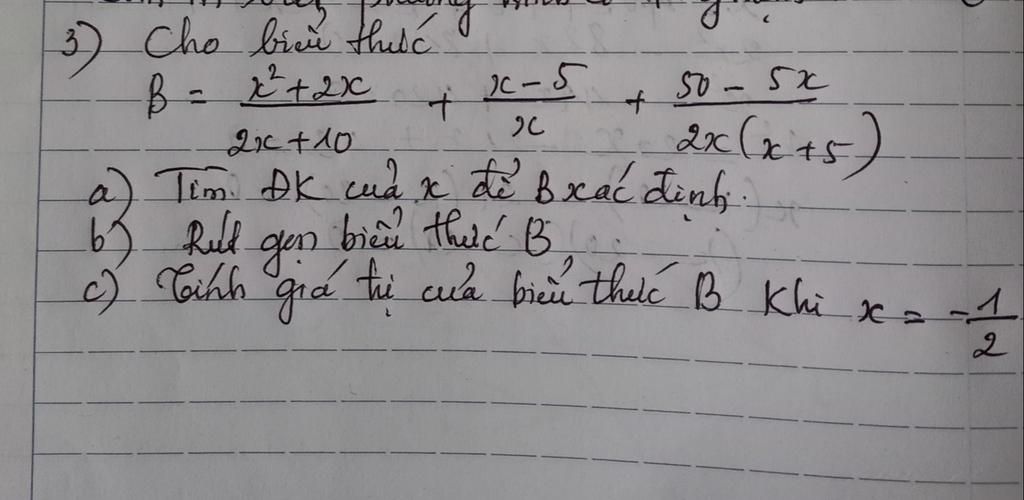 3) Cho biểu thức
B = \frac{x^2+2x}{2x+10} + \frac{x-5}{x} + \frac{50-5x}{2x(x+5)}
a) Tìm ĐK của x để B xác định.
b) Rút gọn biểu thức B
c) Tính giá trị của biểu thức B Khi x = -\frac{1}{2}